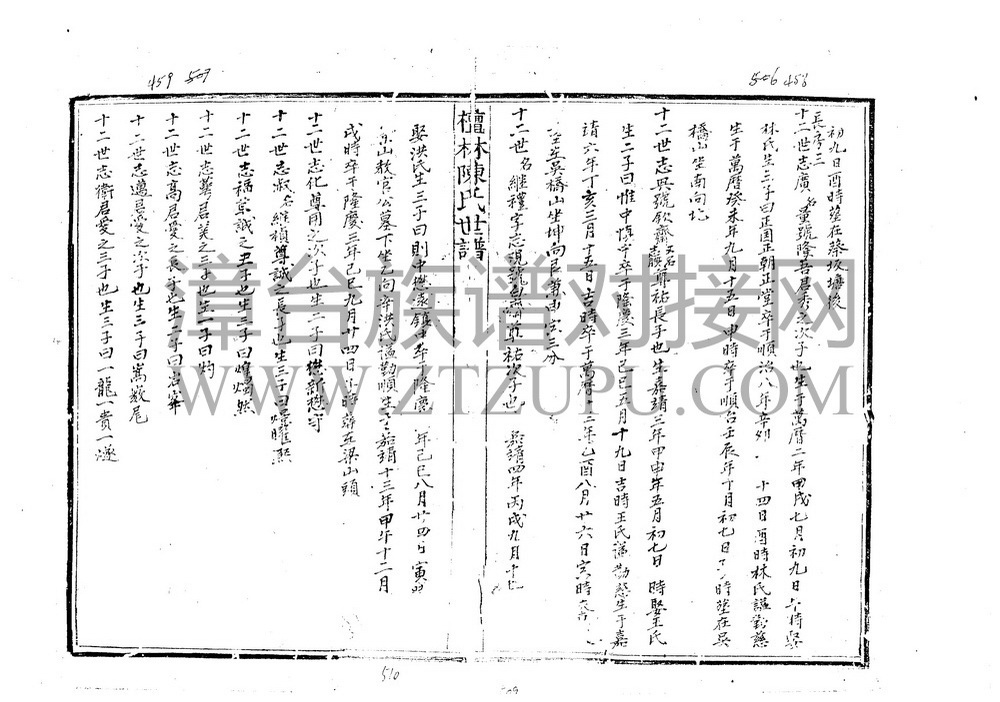 506 458
初九日酉時塟在蔡坂塘後
長房三
十二世志廣名童號隆吾昌秀之次子也生于萬曆二年甲戌七月初九日午時娶
林氏生三子曰正國正朝正堂卒于順治八年辛卯 十四日酉時林氏謚勤慈
生于萬曆癸未年九月十五日申時卒于順治壬辰年十月初七日 時塟在吳
橋山坐南向北
十二世志興號欽齋 尊祐長子也生嘉靖三年甲申年五月初七日 時娶王氏
生二子曰惟中慎中卒于隆慶三年己巳五月十九日吉時王氏謚勤慈生于嘉
靖六年丁亥三月十五日吉時卒于萬曆十三年乙酉八月廿六日亥時
塟吳橋山坐坤向艮兼 三分
十二世名繼禮字志說號 尊祐次子也 嘉靖四年丙戌九月十七
檀林陳氏世譜
459 507
娶洪氏生三子曰則中懋 鎮中卒于隆慶 年己巳八月廿四日寅
山教官公墓下坐乙向辛洪氏謚勤順生于嘉靖十三年甲午十二月
戌時卒于隆慶三年己巳九月廿四日 時 梁山頭
十二世志化尊用之次子也生二子曰懋新懋守
十二世志淑名繼禎尊誠之長子也生三子曰 曜熙
十二世志福京誠之 子也生三子曰 然
十二世志 君美之三子也生一子曰灼
十二世志高君愛之長子也生二子曰治
十二世志邊景愛之次子也生三子曰嵩 尾
十二世志衛君愛之三子也生三子曰一龍一貴一燧
510
漳台族谱对接网
WWW.ZTZUPU.COM